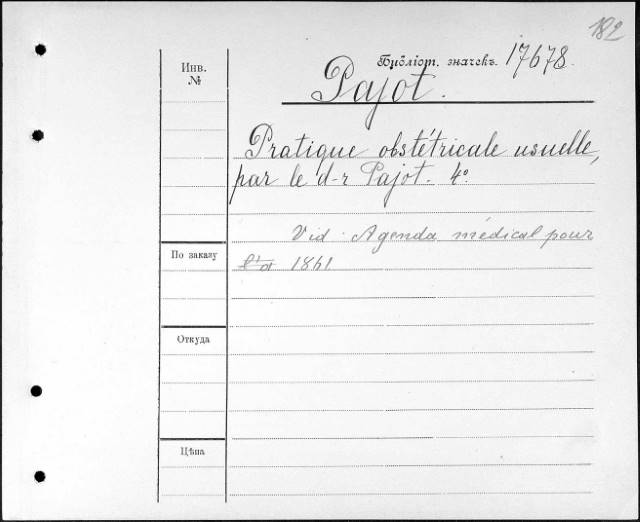 182
Инв.
№
Библіот. значекъ. 17678.
Pajot.
Pratique obstétricale usuelle,
par le d-r Pajot. 4º
Vid. Agenda médical pour
1861
По заказу
Откуда
Цѣна